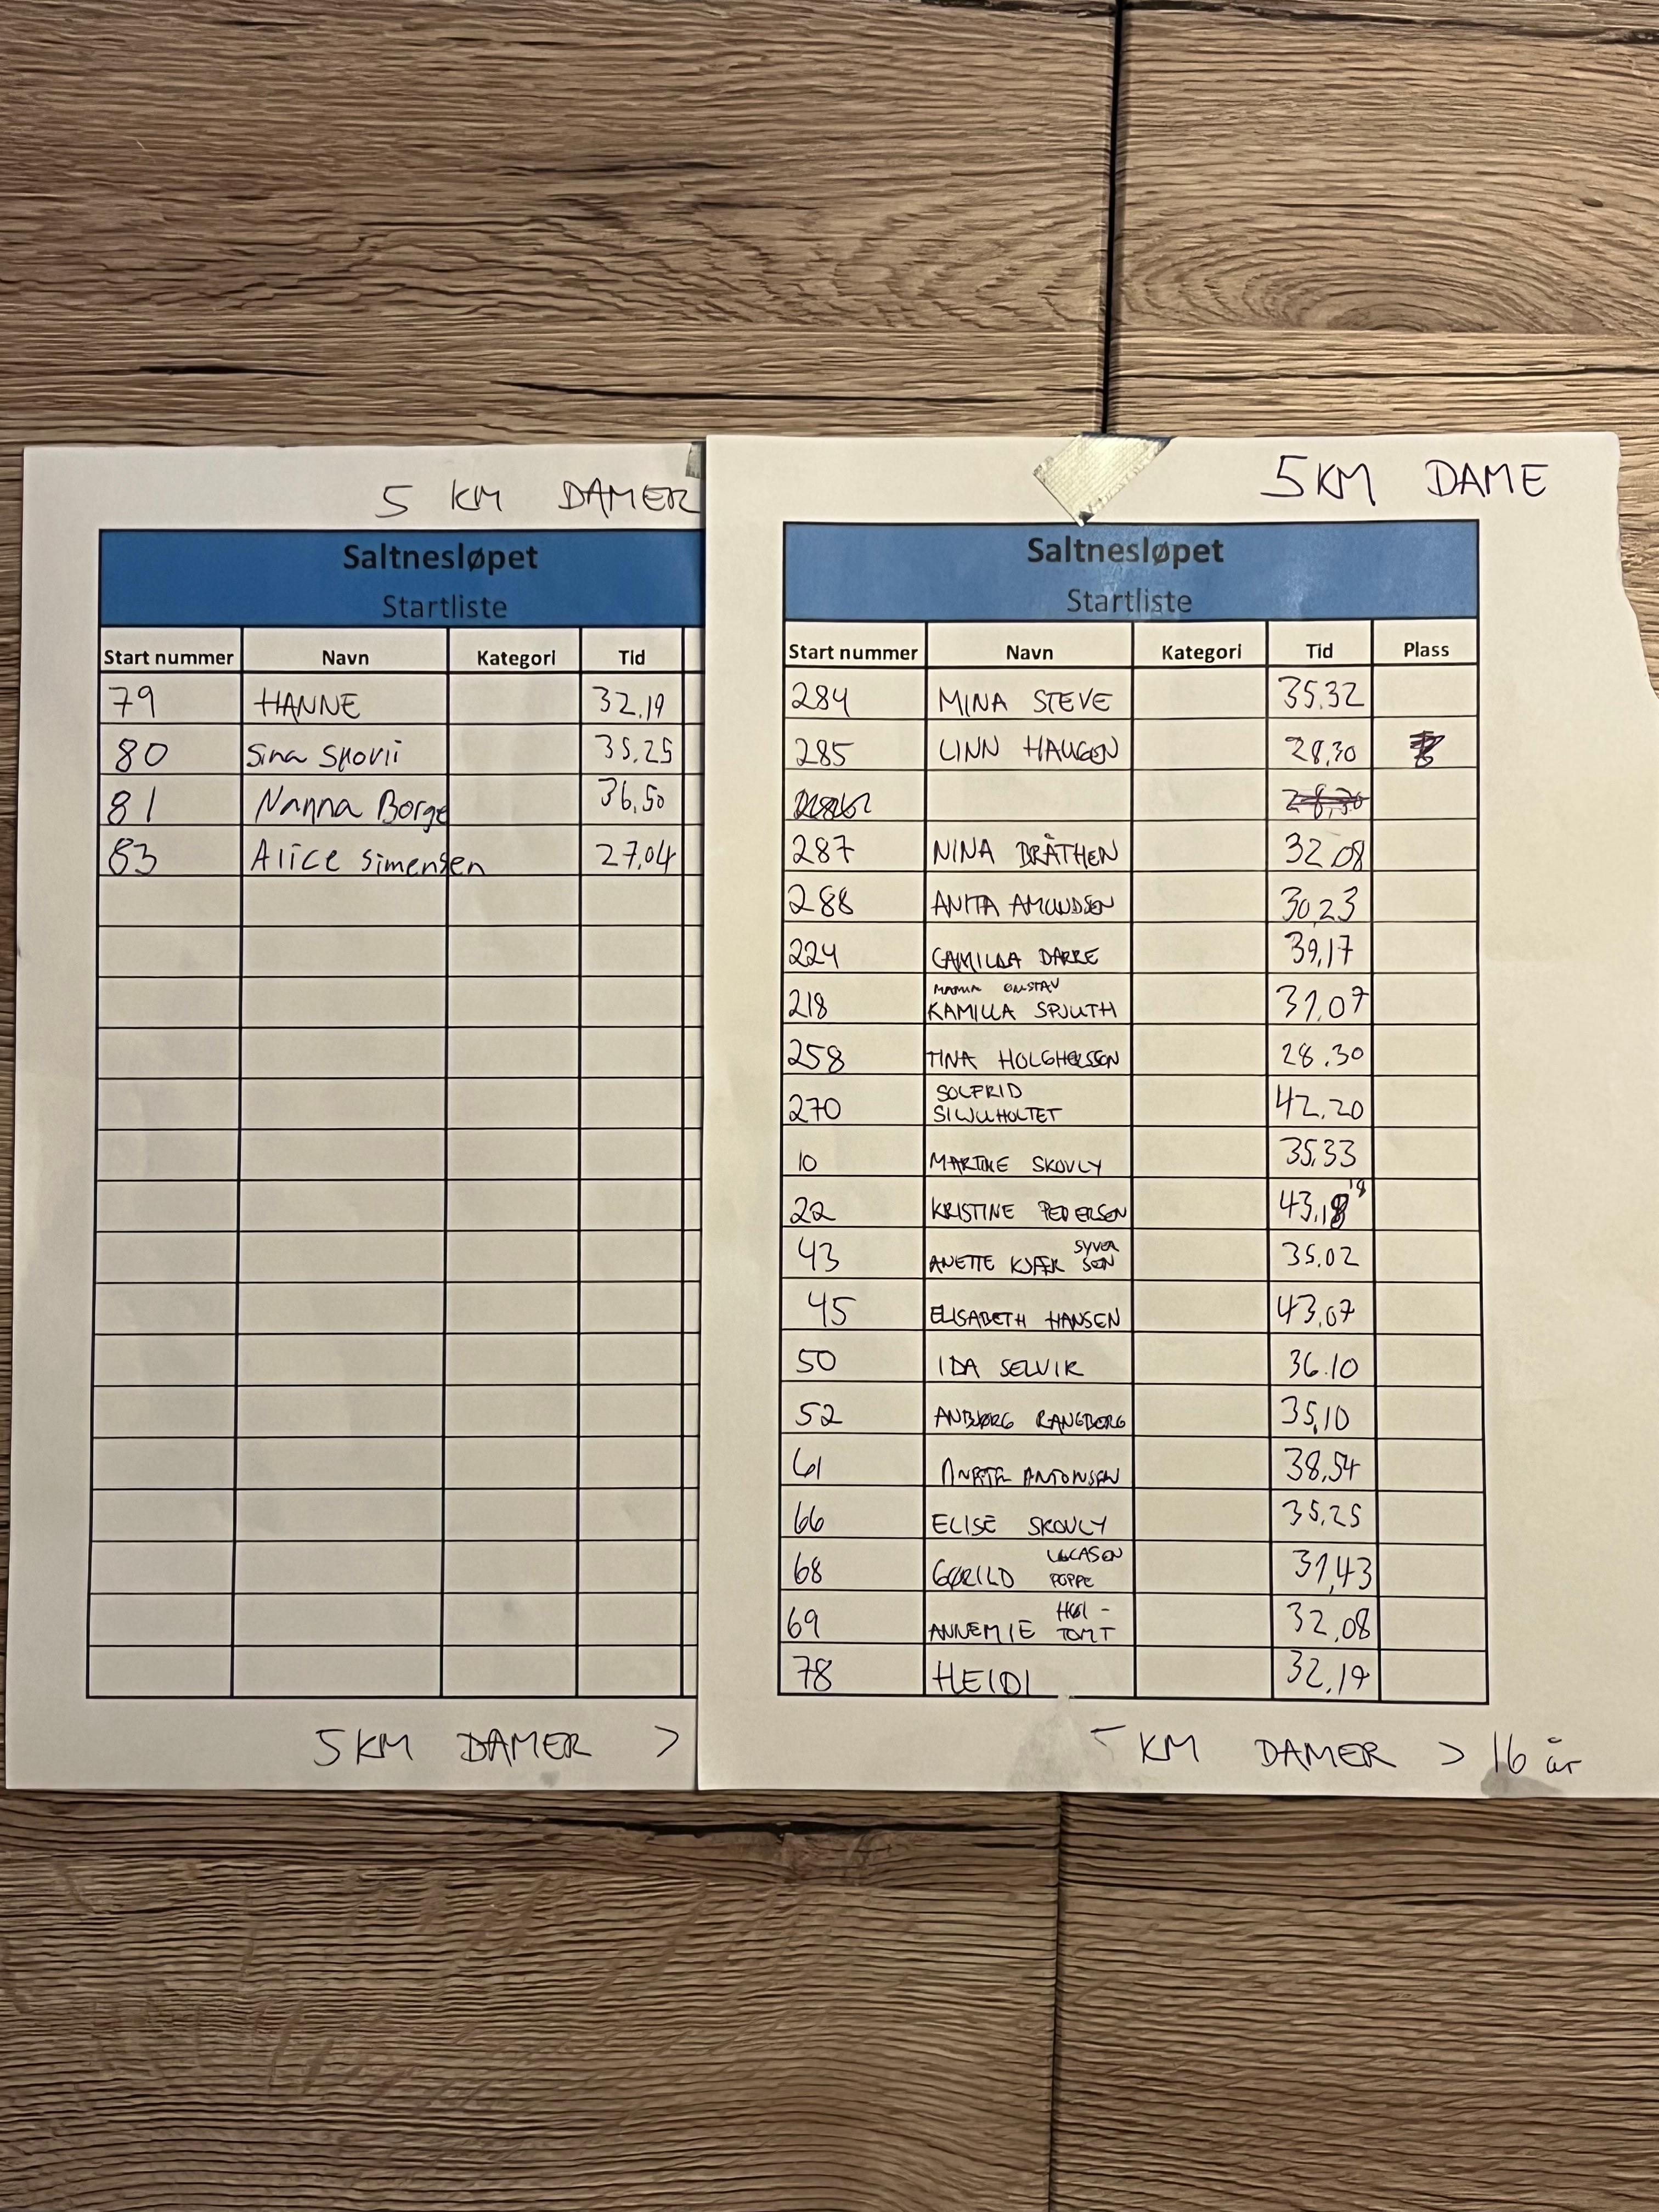 5 KM DAMER
Saltnesløpet
Startliste
Start nummer Navn Kategori Tid
79 HANNE 32.19
80 Sina Skovli 35.25
81 Nanna Borge 36,50
83 Alice Simensen 27,04
5 KM DAMER >
5 KM DAME
Saltnesløpet
Startliste
Start nummer Navn Kategori Tid Plass
284 MINA STEVE 35.32
285 LINN HAUGEN 28,30
28,30
287 NINA BRÅTHEN 32.08
288 ANITA AMUNDSEN 30,23
224 CAMILLA DARRE 39,17
MAMMA GUSTAV
218 KAMILLA SPJUTH 31.07
258 TINA 28.30
SOLFRID
270 42.20
10 MARTINE SKOVLY 35.33
22 KRISTINE PEDERSEN 43,18 18
43 ANETTE KJÆR SYVER SEN 35.02
45 ELISABETH HANSEN 43,07
50 IDA SELVIK 36.10
52 ANBJØRG RANGBERG 35,10
61 ANETTE ANTONSEN 38,54
66 ELISE SKOVLY 35.25
68 GØRILD POPPE 31,43
69 ANNEMIE HOL - TOMT 32,08
78 HEIDI 32.19
5 KM DAMER > 16 år